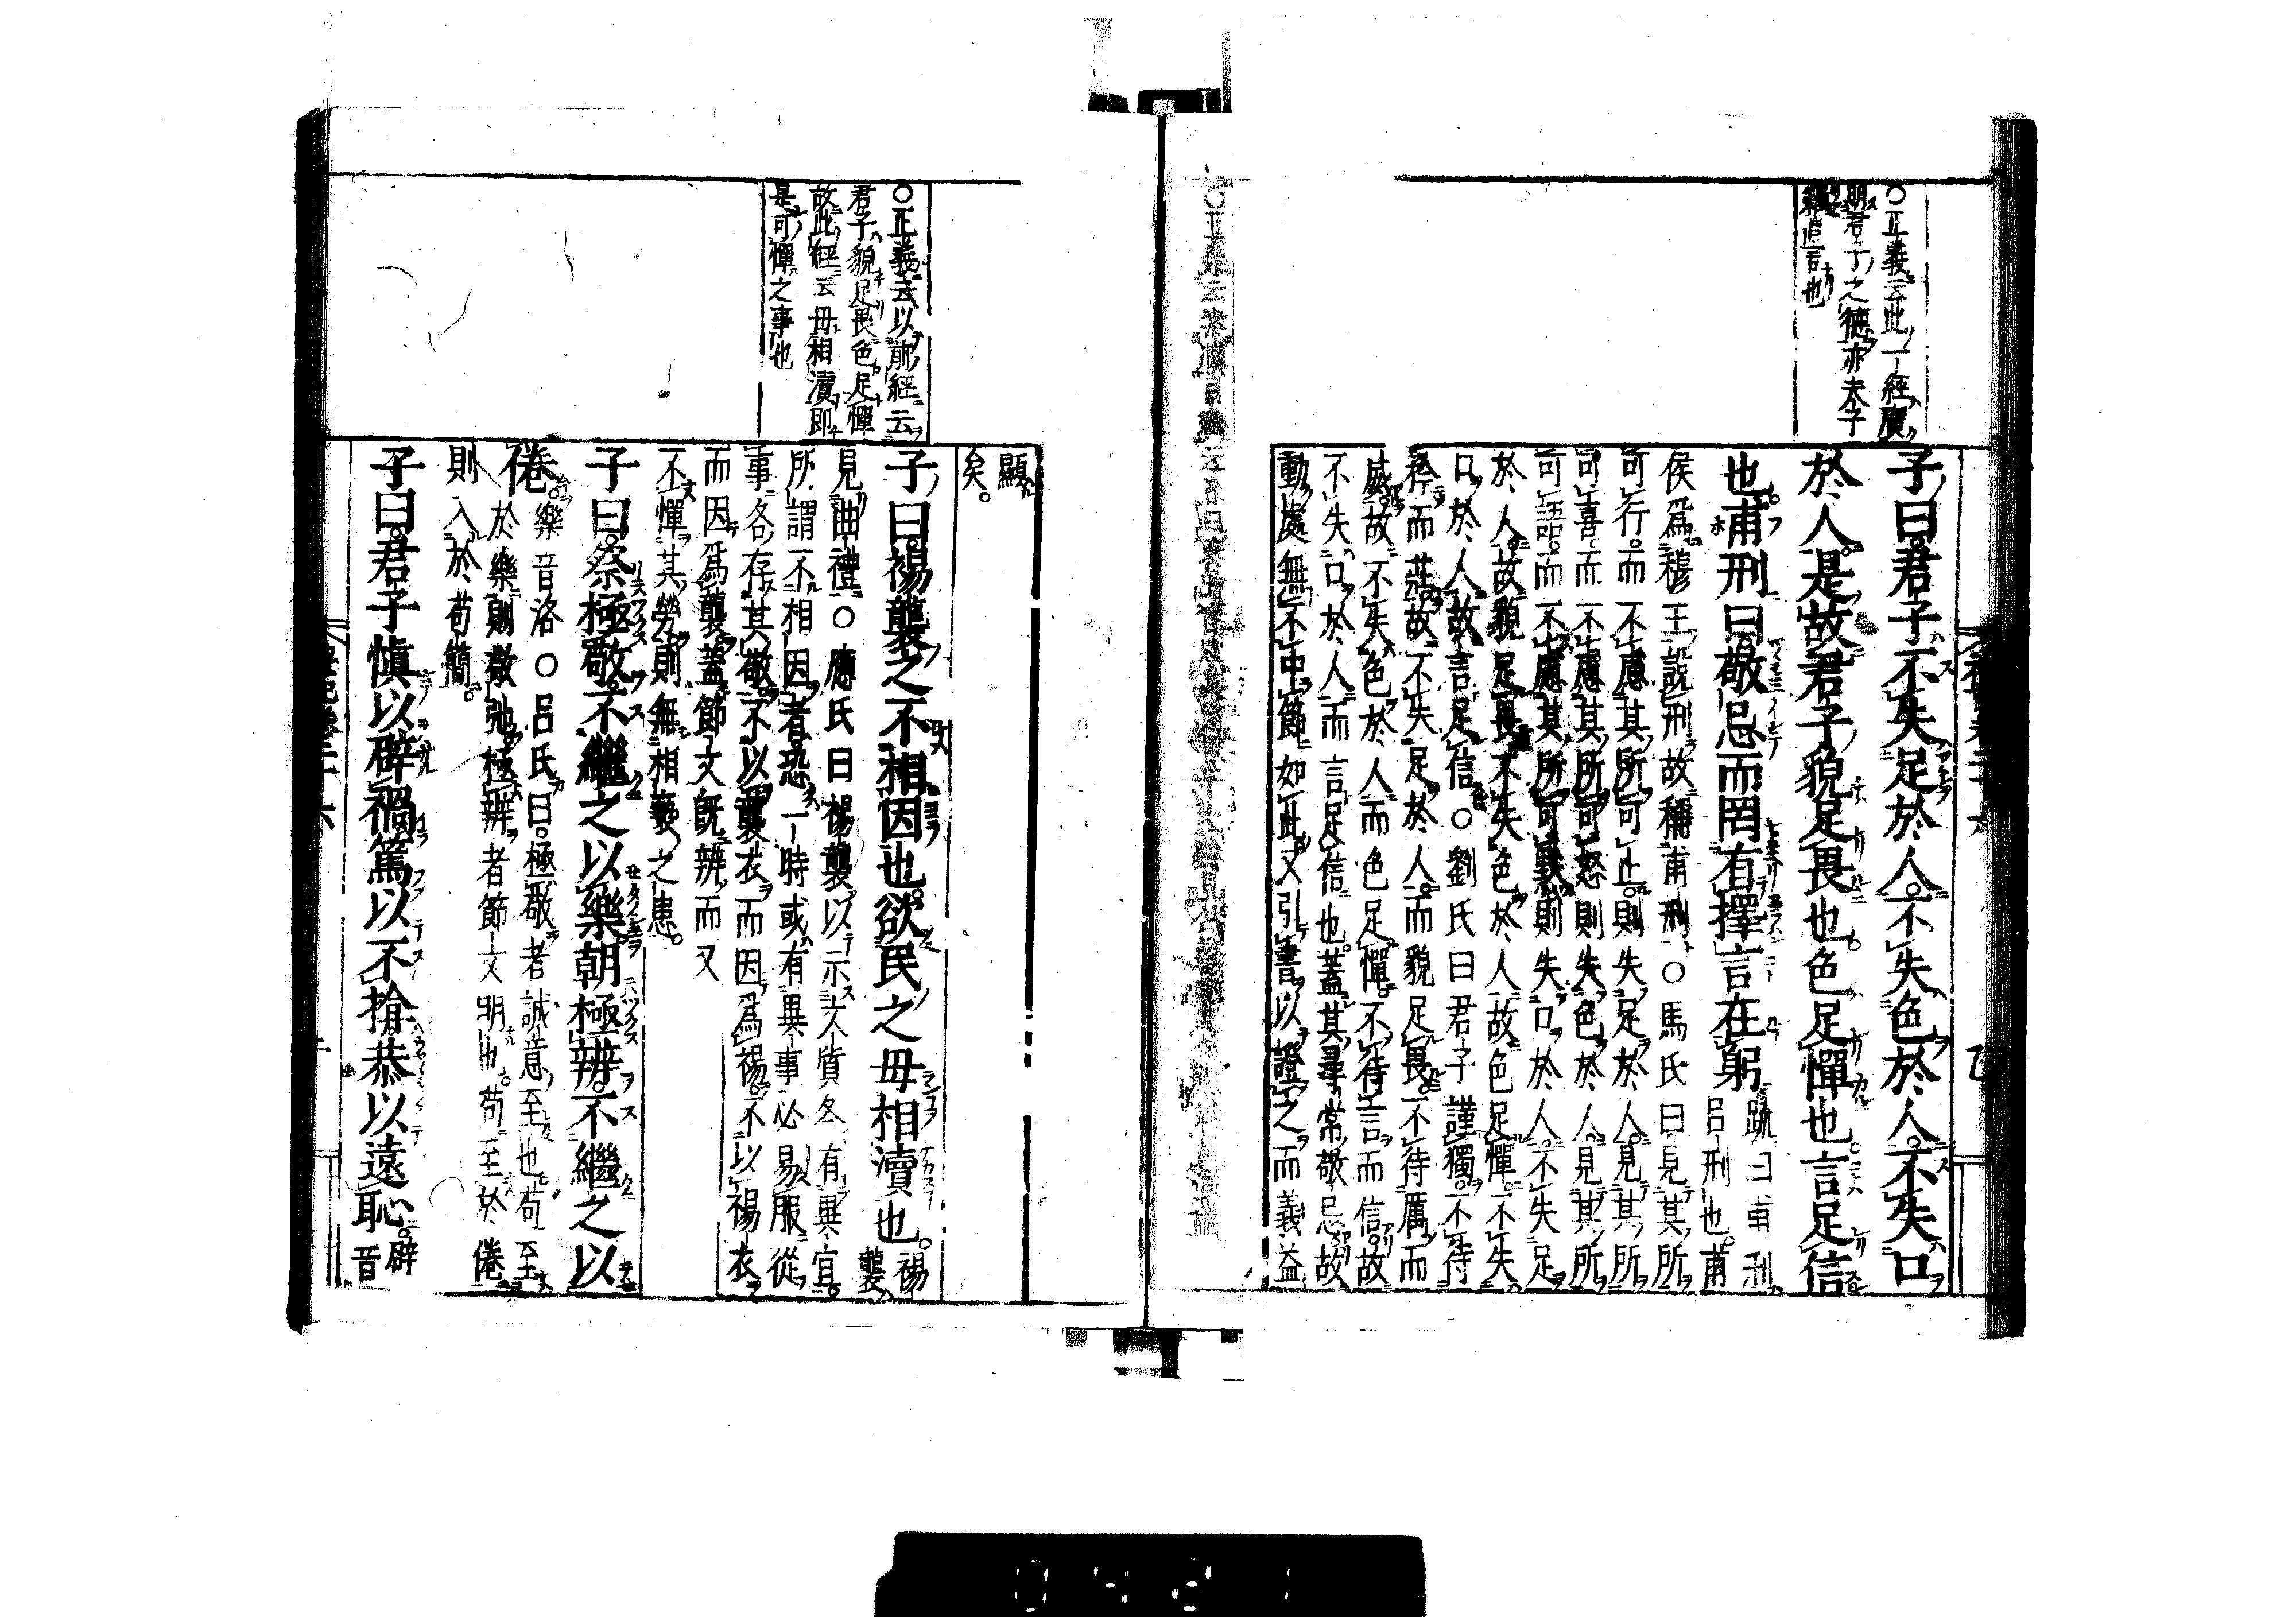 ○正義云此一經廣
明君子之德亦夫子
雜言也
子曰君子不失足於人不失色於人不失口
於人是故君子貌足畏也色足憚也言足信
也甫刑曰敬忌而罔有擇言在躬
疏曰甫刑
呂刑也甫
侯爲穆王說刑故稱甫刑○馬氏曰見其所
可行而不慮其所可止則失足於人見其所
可喜而不慮其所可怒則失色於人見其所
可語而不慮其所可默則失口於人不失足
於人故貌足畏不失色於人故色足憚不失
口於人故言足信○劉氏曰君子謹獨不待
矜而莊故不失足於人而貌足畏不待厲而
威故不失色於人而色足憚不待言而信故
不失口於人而言足信也蓋其尋常敬忌故
動處無不中節如此又引書以證之而義益
○正義云以前經云
君子貌足畏色足憚
故此經云毋相瀆即
是可憚之事也
顯
矣
子曰裼襲之不相因也欲民之毋相瀆也
裼
襲
見曲禮○應氏曰裼襲以示文質各有異宜
所謂不相因者恐一時或有異事必易服從
事各存其敬不以襲衣而因爲裼不以裼衣
而因爲襲蓋節文既辨而又
不憚其勞則無相褻之患
子曰祭極敬不繼之以樂朝極辨不繼之以
倦
樂音洛○呂氏曰極敬者誠意至也苟至
於樂則敬弛極辨者節文明也苟至於倦
則入於苟簡
子曰君子愼以辟禍篤以不揜恭以遠恥
辟
音